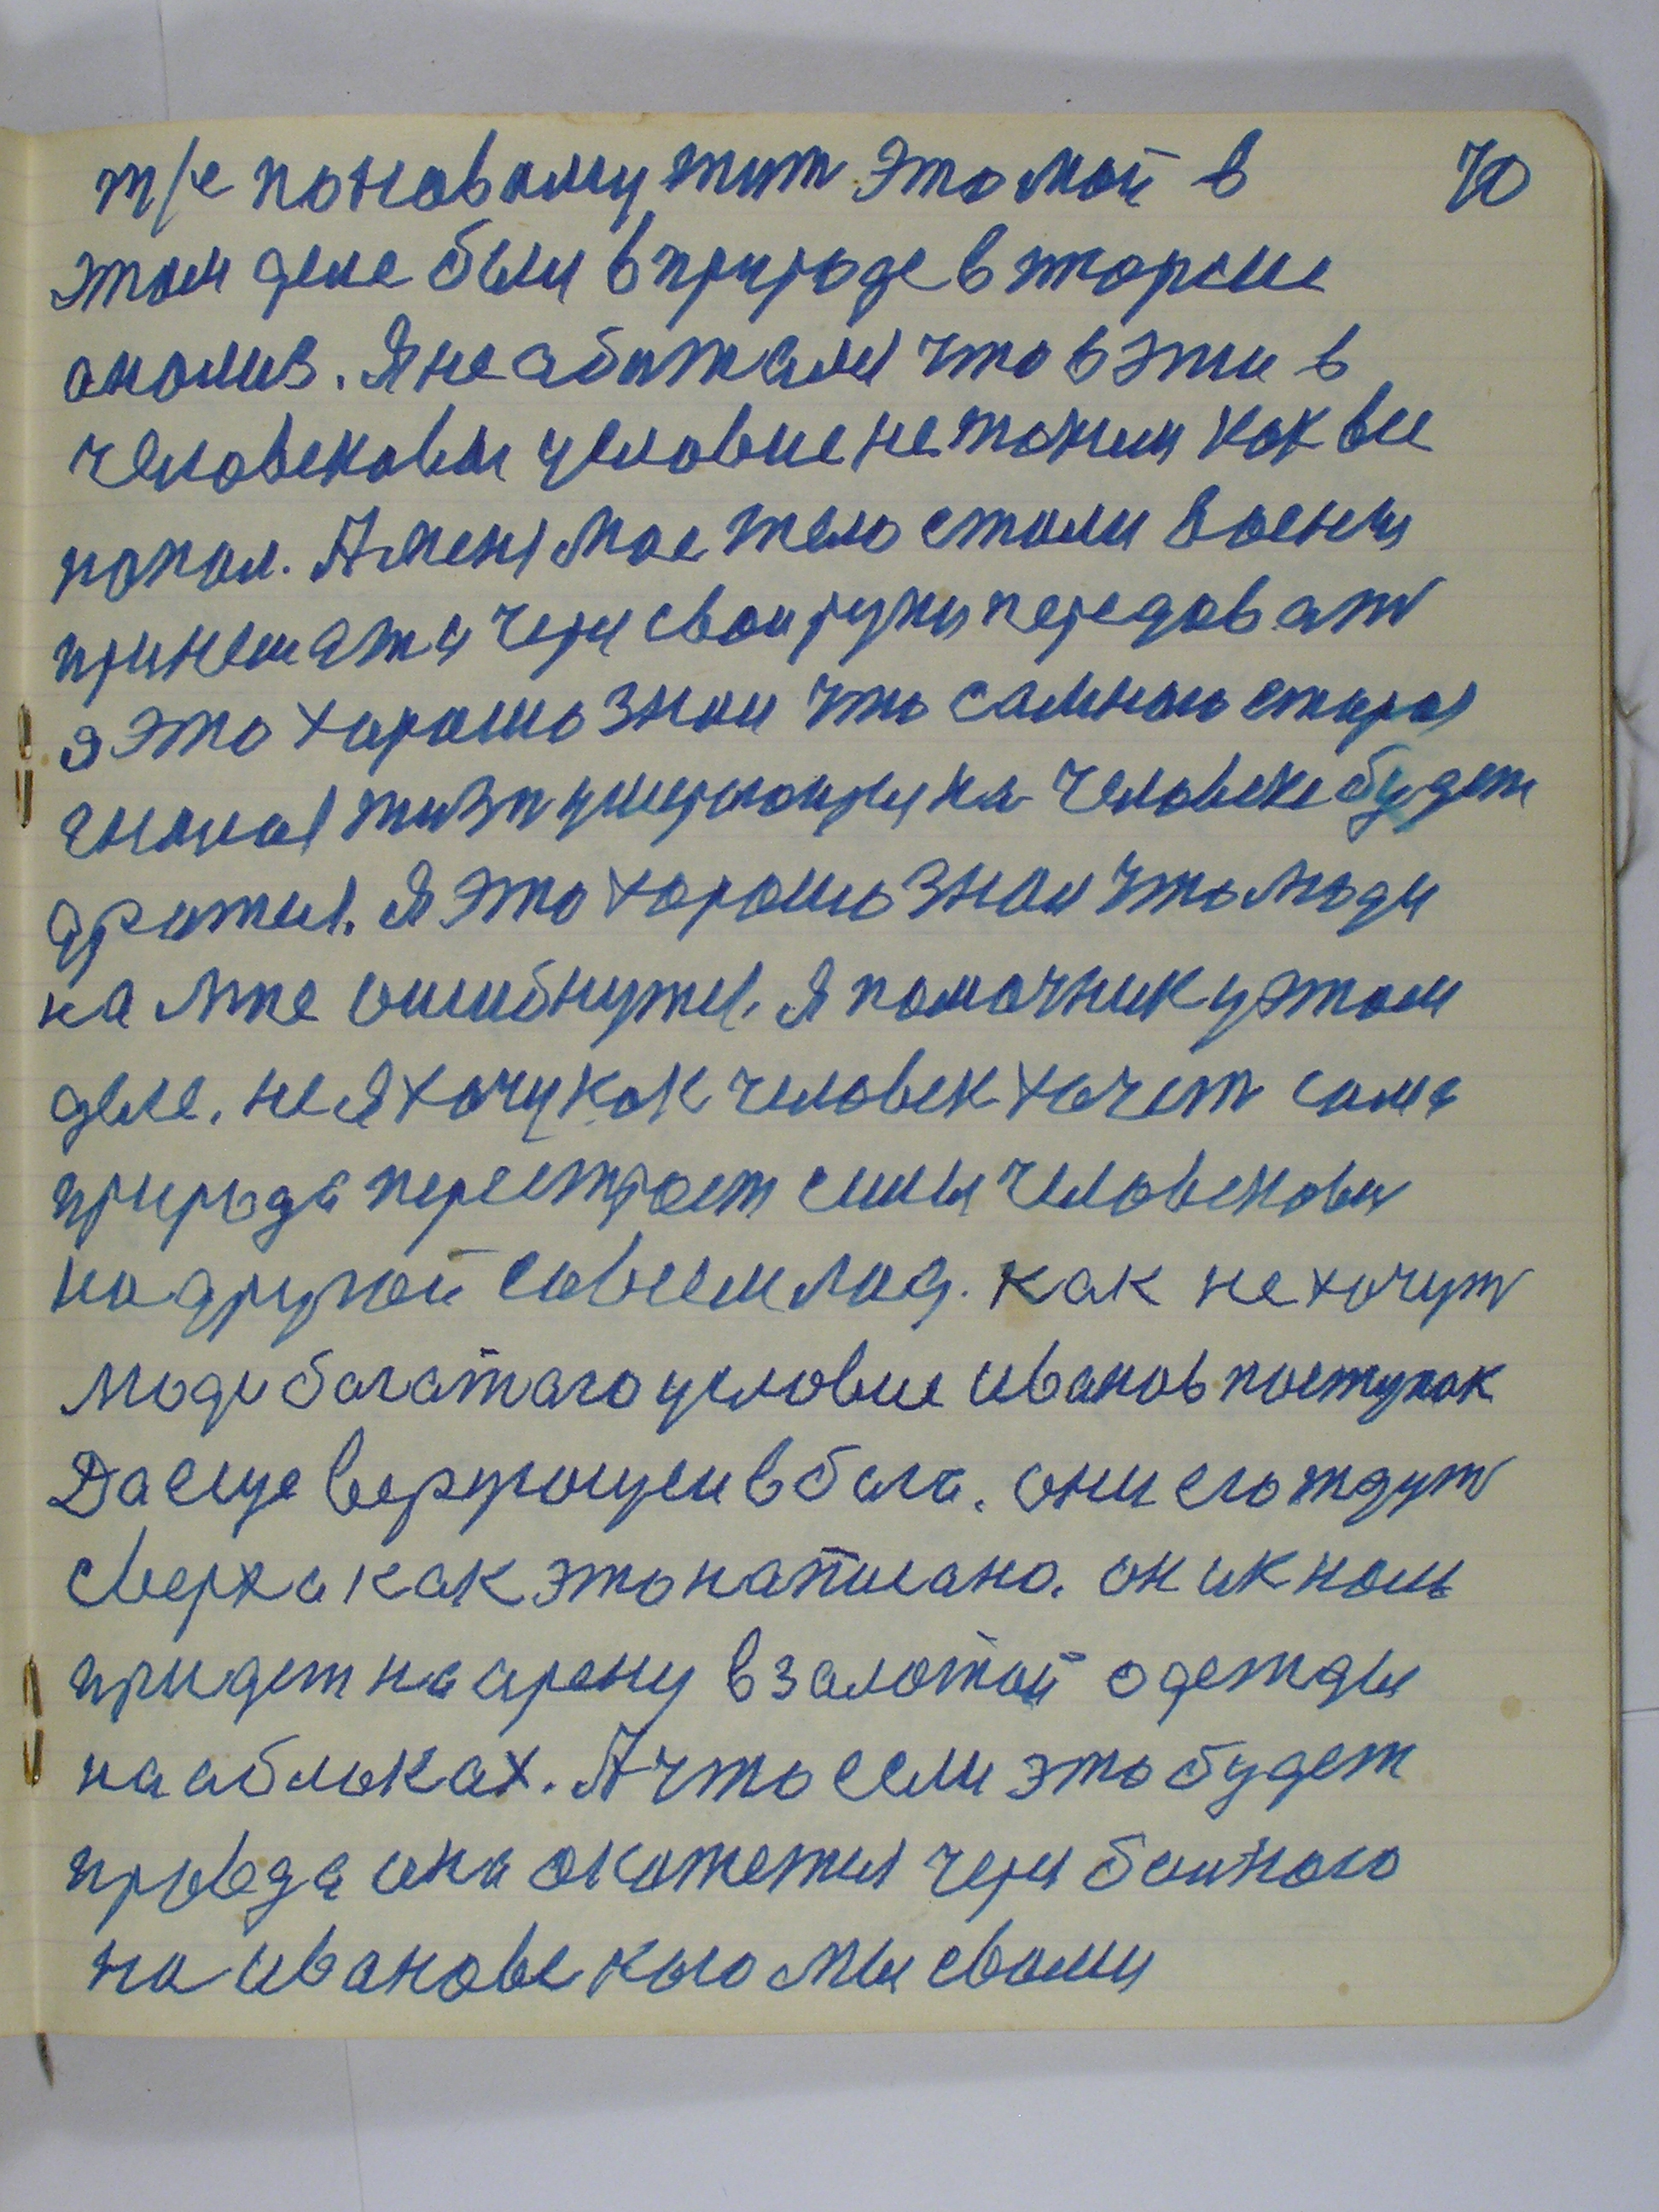 т/е поновому жит это мой в 70
этом деле были в природе вторые
анализ. Я не абижаюсь что в эти в
человековы условие не такии как вы
попал. А меня мое тело стали воены
принемат а через свои руки передоват
я это хорошо знаю что самною старая
гнилая жизн умершопря на человеке будет
дратся. Я это хорошо знаю что люди
на мне ошибнутся. Я помочник у этом
деле. не я хочу как человек хочет сама
природа перестроет силы человековы
на другой совсем лад. как не хочут
люди багатаго условие иванов поступок
Да еще верующеи в бога. они его ждут
сверха как это написано. он ик ном
придет на арену в залотой одежды
на аблоках. А что если это будет
правда она окажется через бан ного
на иванове кого мы свами